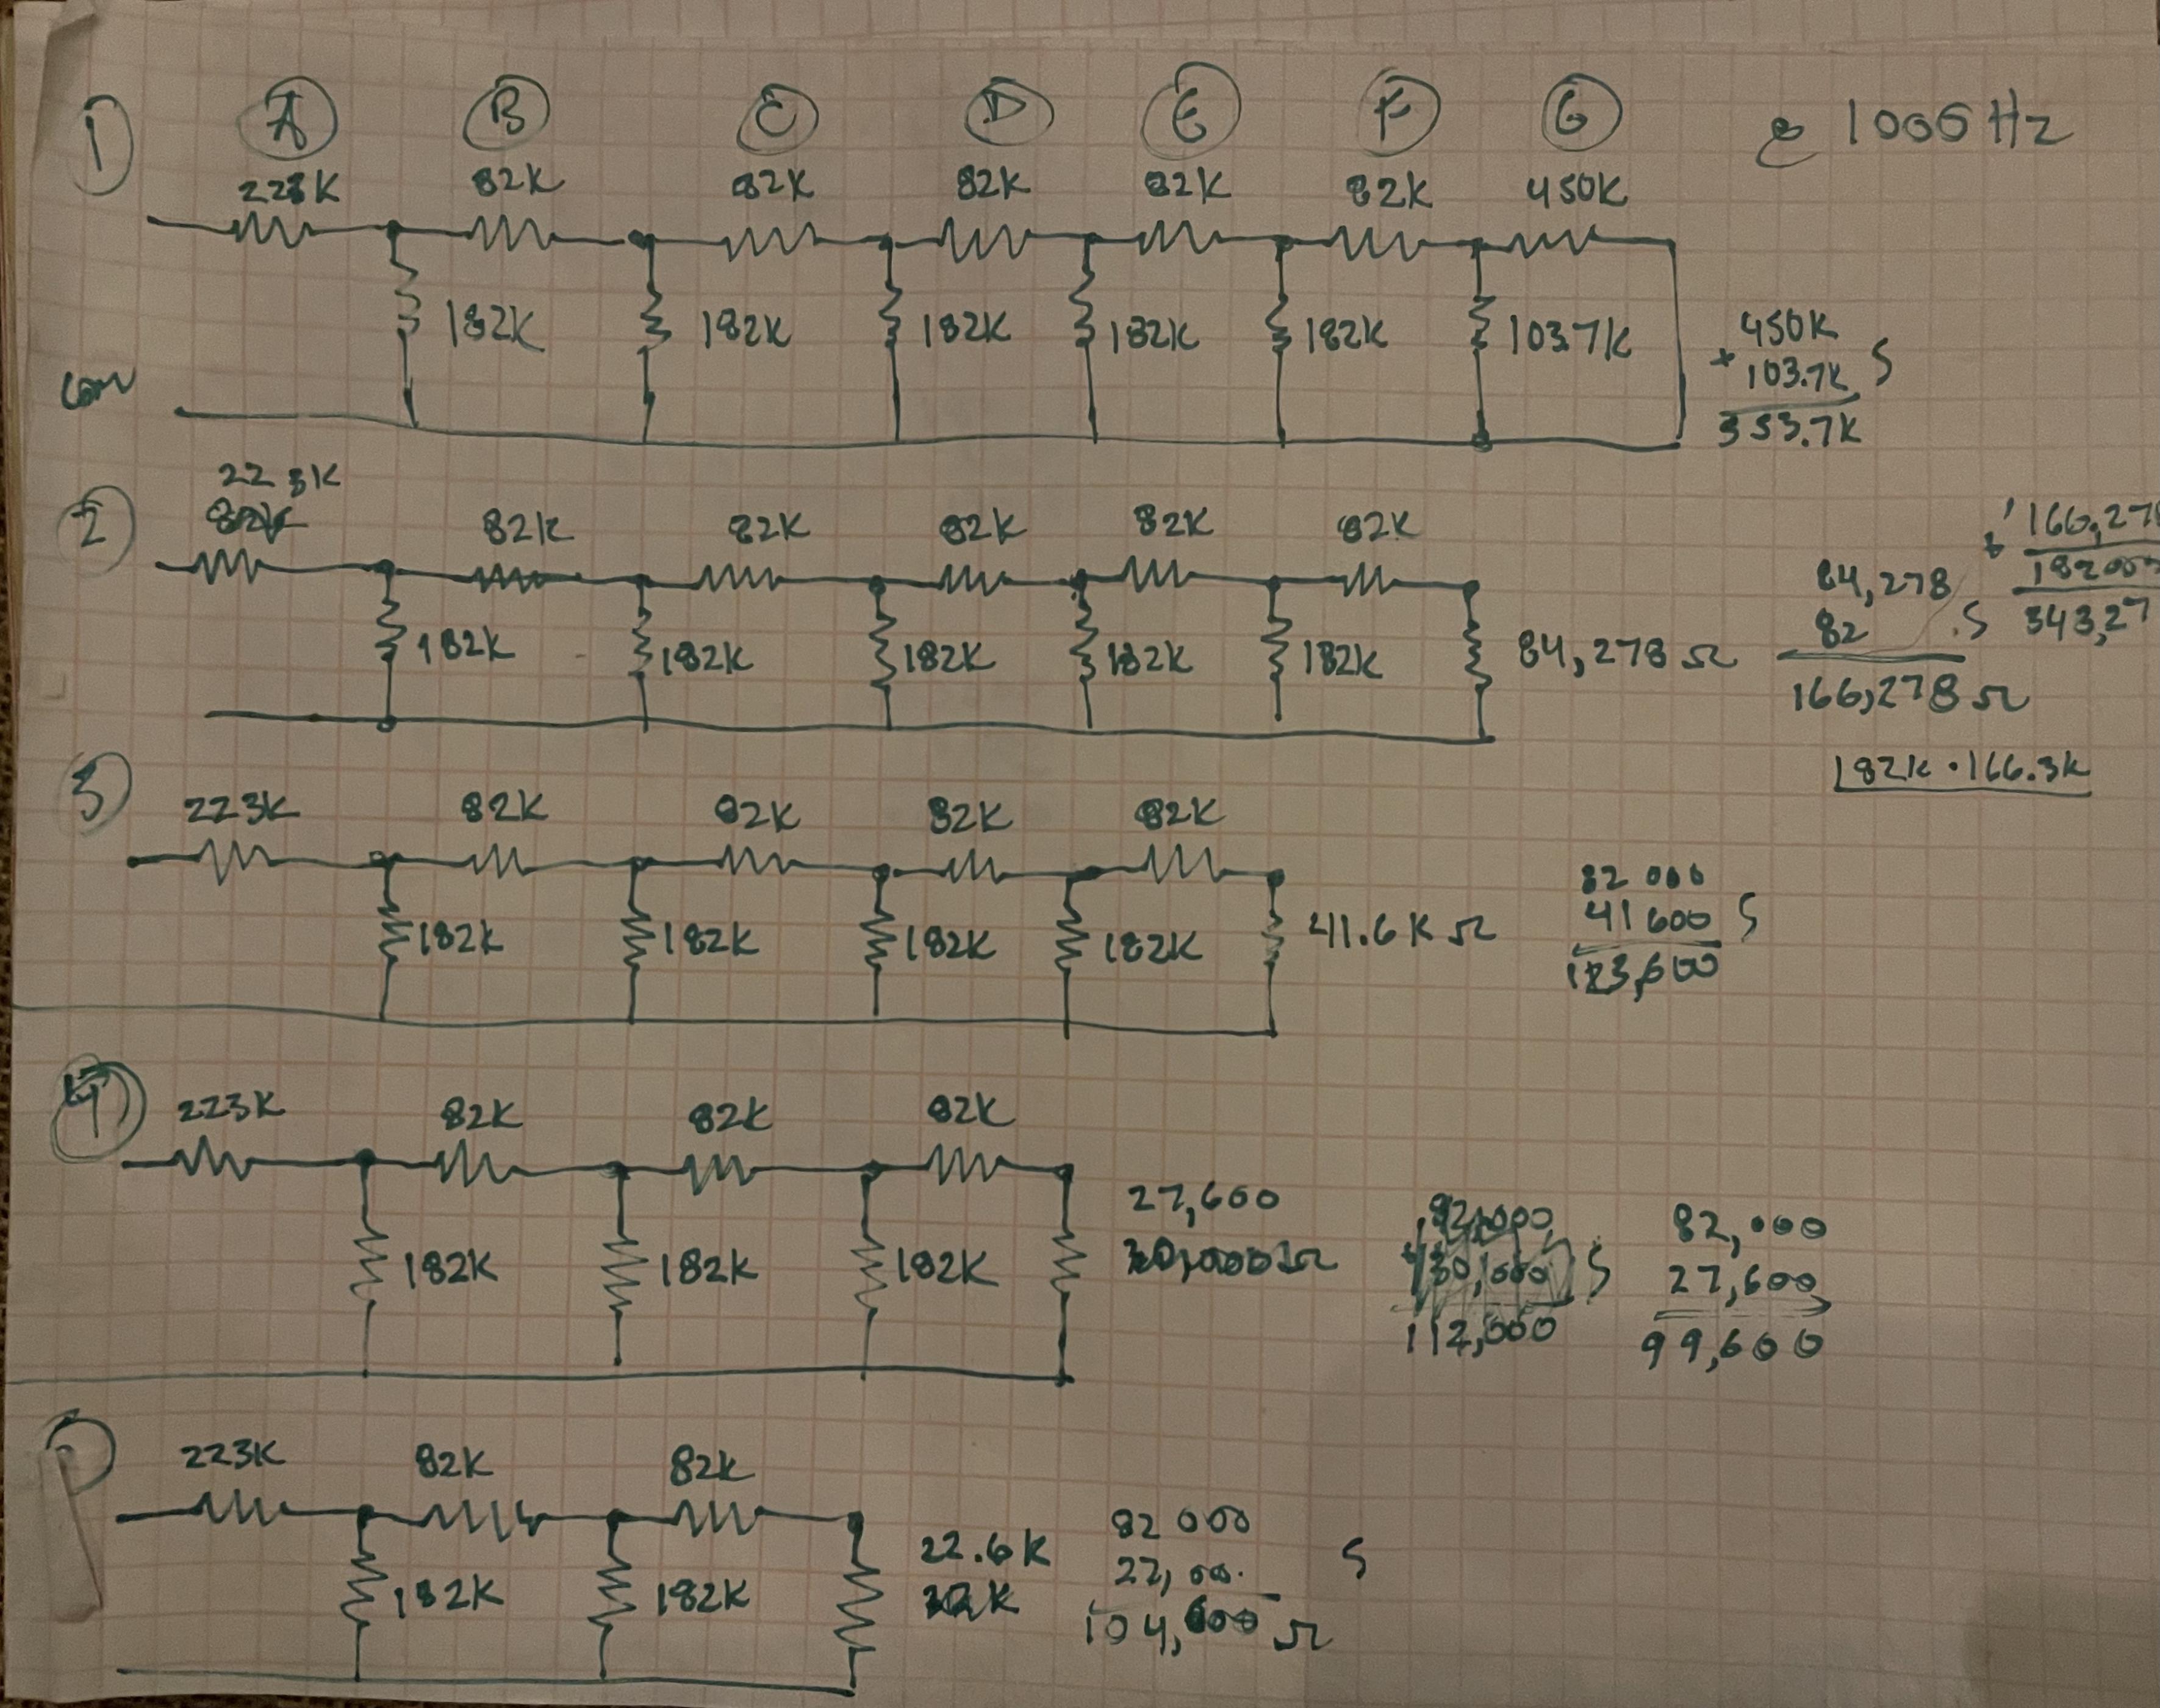 1 A B C D E F G @ 1000 Hz
223K 82K 82K 82K 82K 82K 450K
182K 182K 182K 182K 182K 103.7K
com
450K
+ 103.7K S
353.7K
2 223K
82K 82K 82K 82K 82K 82K
182K 182K 182K 182K 182K 84,278 Ω
84,278
82 S
166,278 Ω
166,27
182000
343,27
182K · 166.3K
3 223K 82K 82K 82K 82K
182K 182K 182K 182K 41.6K Ω
82 000
41 600 S
123,600
4 223K 82K 82K 82K
182K 182K 182K 27,600
30,000 Ω
82,000
30,000 S
112,000
82,000
27,600
99,600
223K 82K 82K
182K 182K 22.6K
82 000
S
104,600 Ω